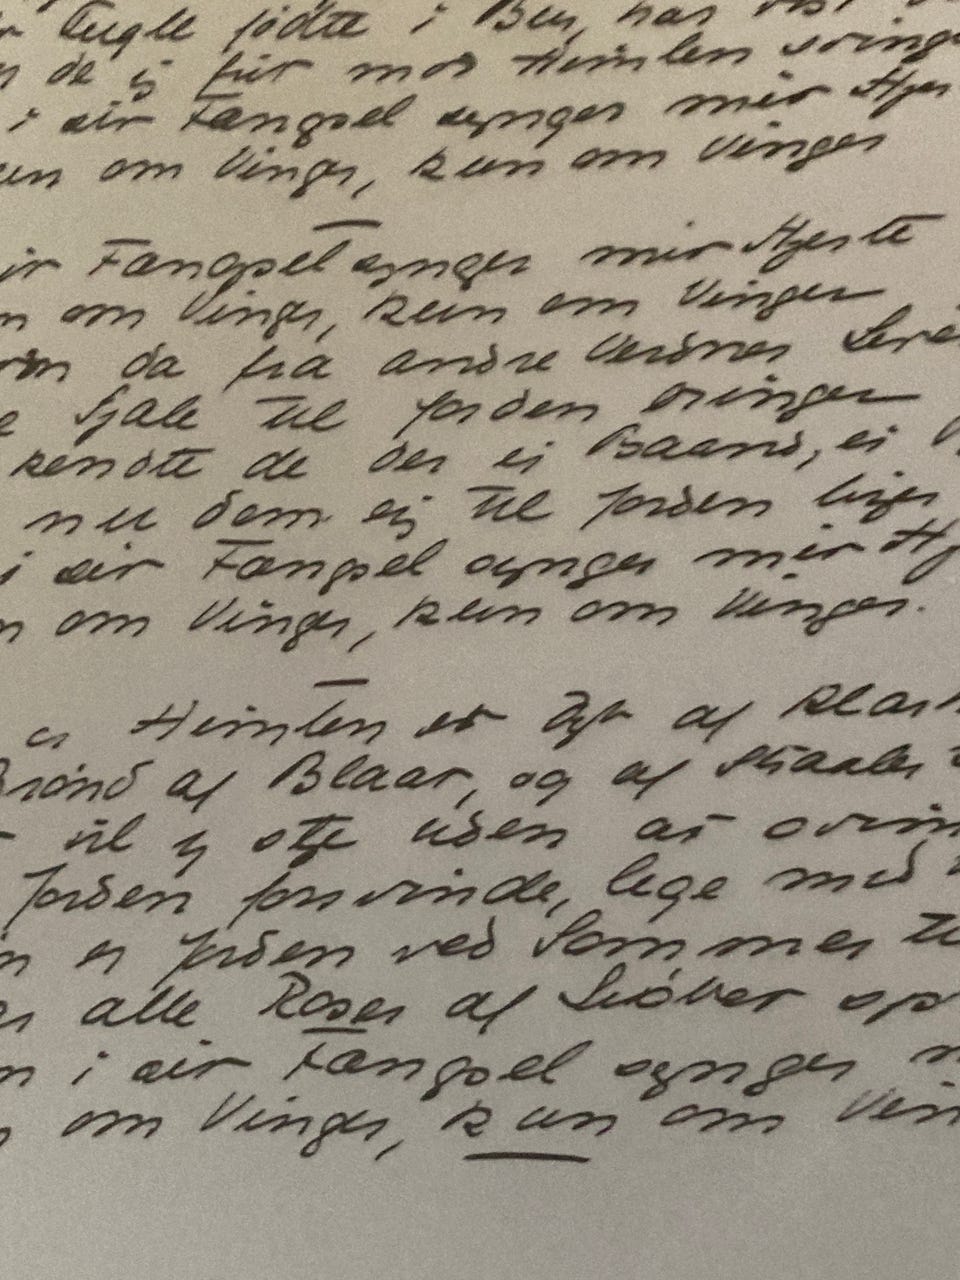 Fugle fødte i Bur, har
de ej før mod Himlen svinge
i sit Fængsel synger mit Hjer
om Vinger, kun om Vinger
Fængsel synger mit Hjerte
om Vinger, kun om Vinger
da fra andre Verdner
Sjæle til Jorden bringer
kendte de der ej Baand, ei
nu dem ej til Jorden
i sit Fængsel synger mit Hj
om Vinger, kun om Vinger.
er Himlen et Dyb af Klar
Brønd af Blaat, og af Straaler
vil ej ofte uden at svin
Jorden forsvinde, lege med
er Jorden ved Sommer
alle Roser af Støvet op
i sit Fængsel synger m
om Vinger, kun om Vin